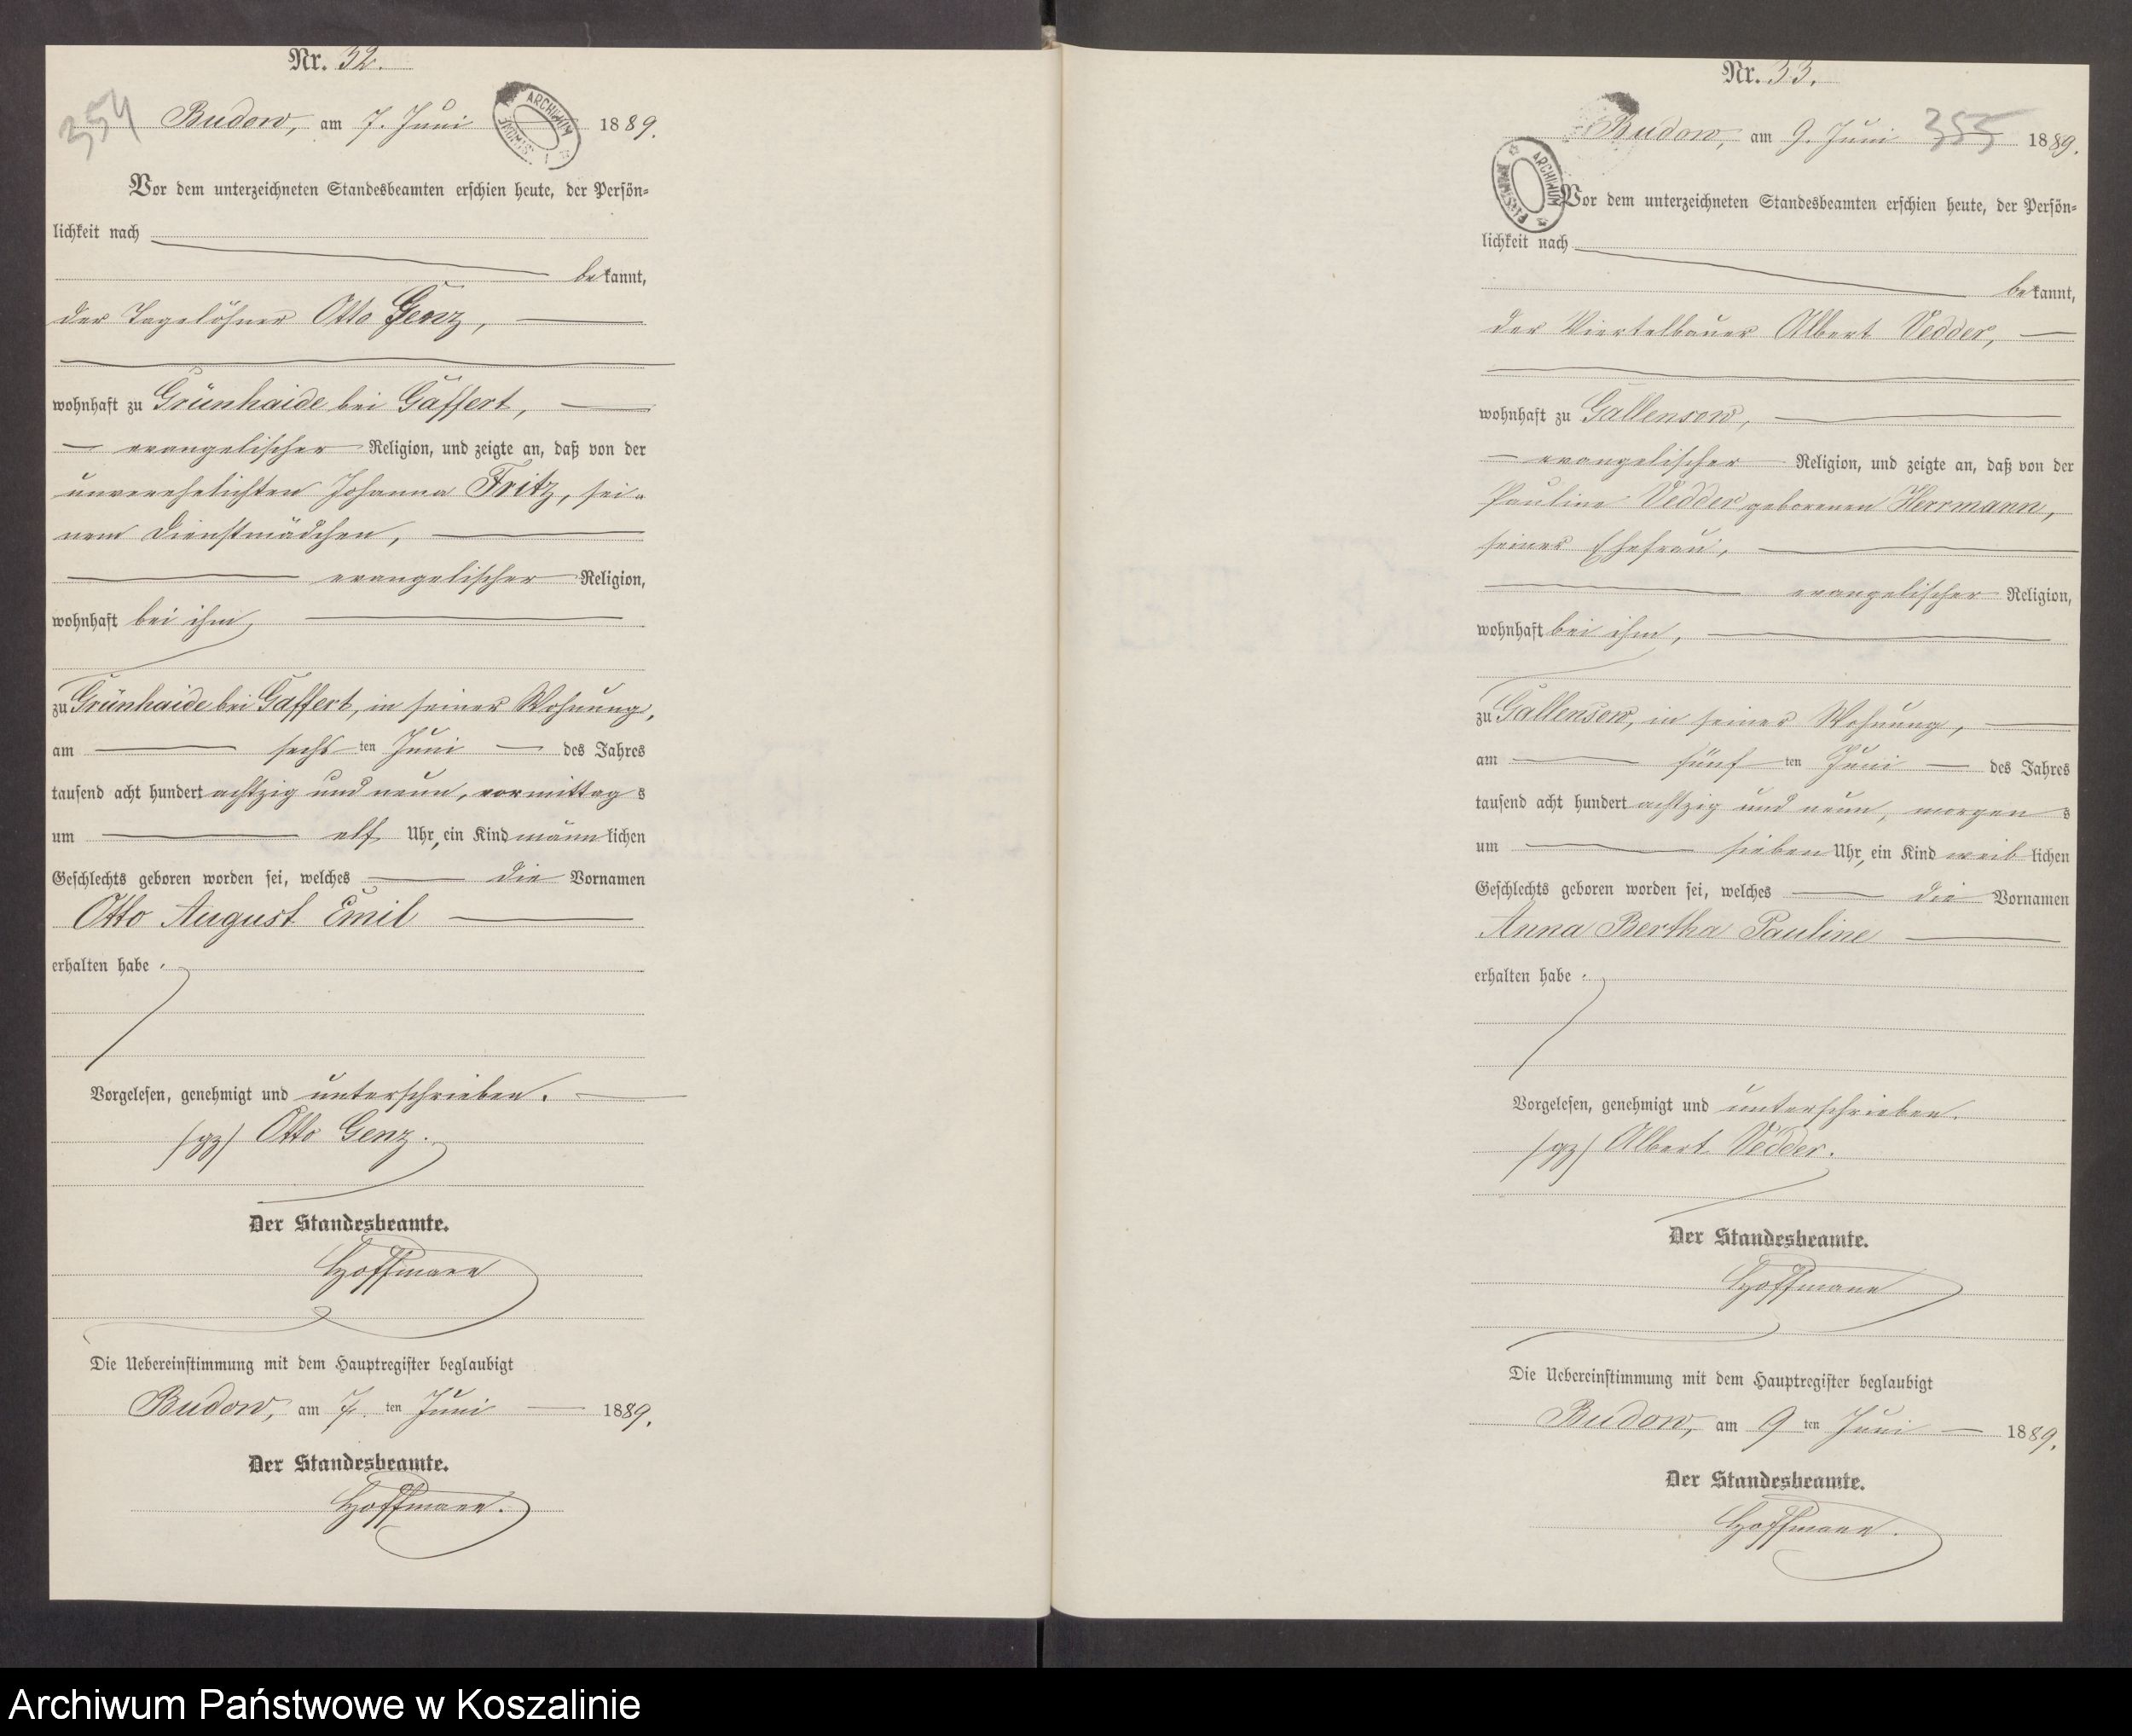 Nr. 32.
354
Budow, am 7. Juni 1889.
ARCHIWUM
Vor dem unterzeichneten Standesbeamten erschien heute, der Persön-
lichkeit nach
bekannt,
der Tagelöhner Otto Genz,
wohnhaft zu Grünhaide bei Gaffert,
evangelischer Religion, und zeigte an, daß von der
unverehelichten Johanna Fritz, sei-
nem Dienstmädchen,
evangelischer Religion,
wohnhaft bei ihm,
zu Grünhaide bei Gaffert, in seiner Wohnung,
am sechsten Juni des Jahres
tausend acht hundert achtzig und neun, vormittags
um elf Uhr, ein Kind männlichen
Geschlechts geboren worden sei, welches die Vornamen
Otto August Emil
erhalten habe.
Vorgelesen, genehmigt und unterschrieben.
/gz/ Otto Genz.
Der Standesbeamte.
Hoffmann
Die Uebereinstimmung mit dem Hauptregister beglaubigt
Budow, am 7. ten Juni 1889.
Der Standesbeamte.
Hoffmann.
Nr. 33.
Budow, am 9. Juni 355 1889.
ARCHIWUM
Vor dem unterzeichneten Standesbeamten erschien heute, der Persön-
lichkeit nach
bekannt,
der Viertelbauer Albert Vedder,
wohnhaft zu Gallensow,
evangelischer Religion, und zeigte an, daß von der
Pauline Vedder geborenen Herrmann,
seiner Ehefrau,
evangelischer Religion,
wohnhaft bei ihm,
zu Gallensow, in seiner Wohnung,
am fünften Juni des Jahres
tausend acht hundert achtzig und neun, morgens
um sieben Uhr, ein Kind weiblichen
Geschlechts geboren worden sei, welches die Vornamen
Anna Bertha Pauline
erhalten habe.
Vorgelesen, genehmigt und unterschrieben.
/gz/ Albert Vedder.
Der Standesbeamte.
Hoffmann
Die Uebereinstimmung mit dem Hauptregister beglaubigt
Budow, am 9 ten Juni 1889.
Der Standesbeamte.
Hoffmann.
Archiwum Państwowe w Koszalinie